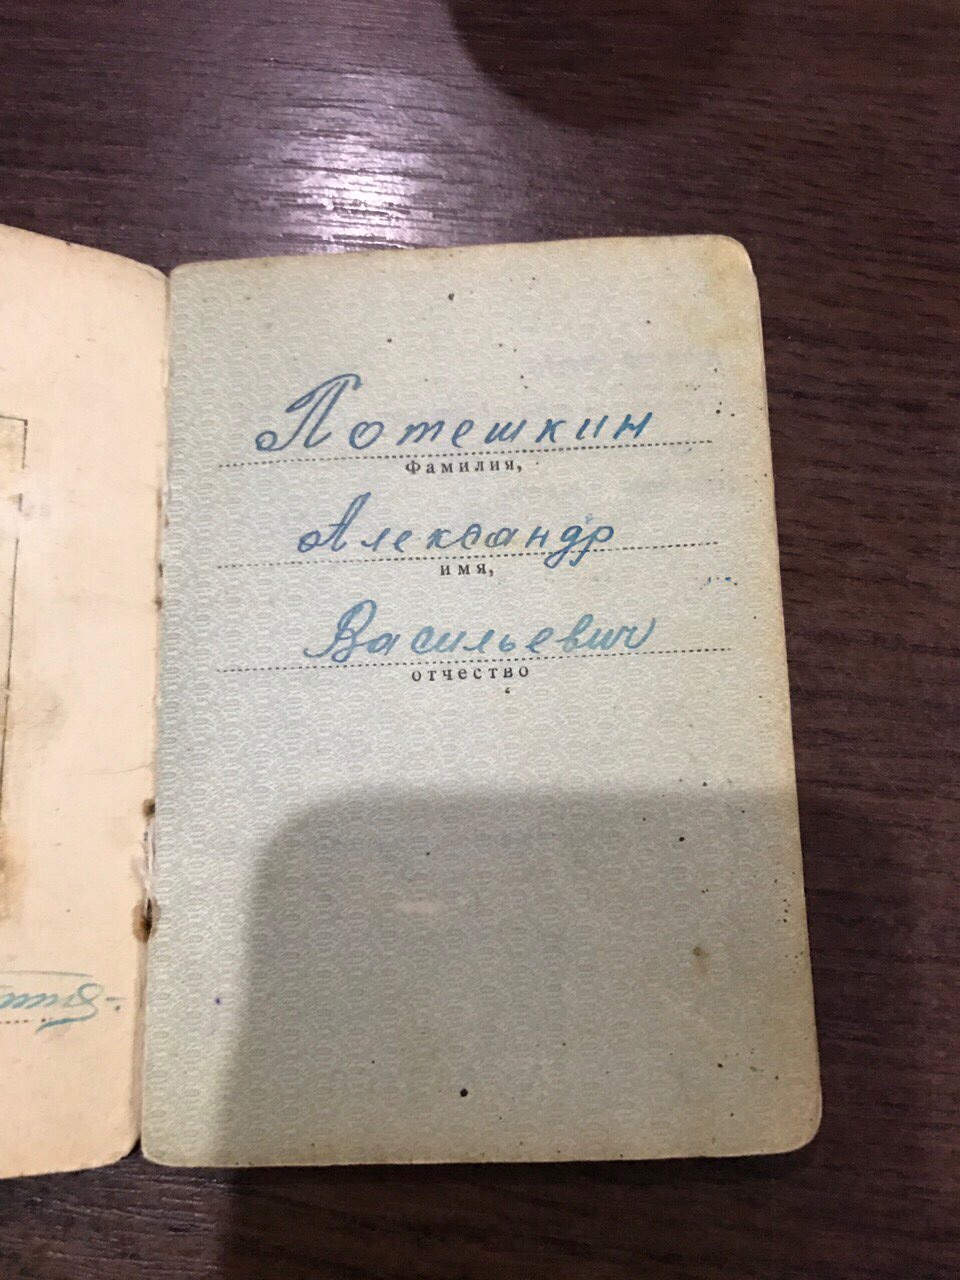 Потешкин
Фамилия,
Александр
имя,
Васильевич
отчество